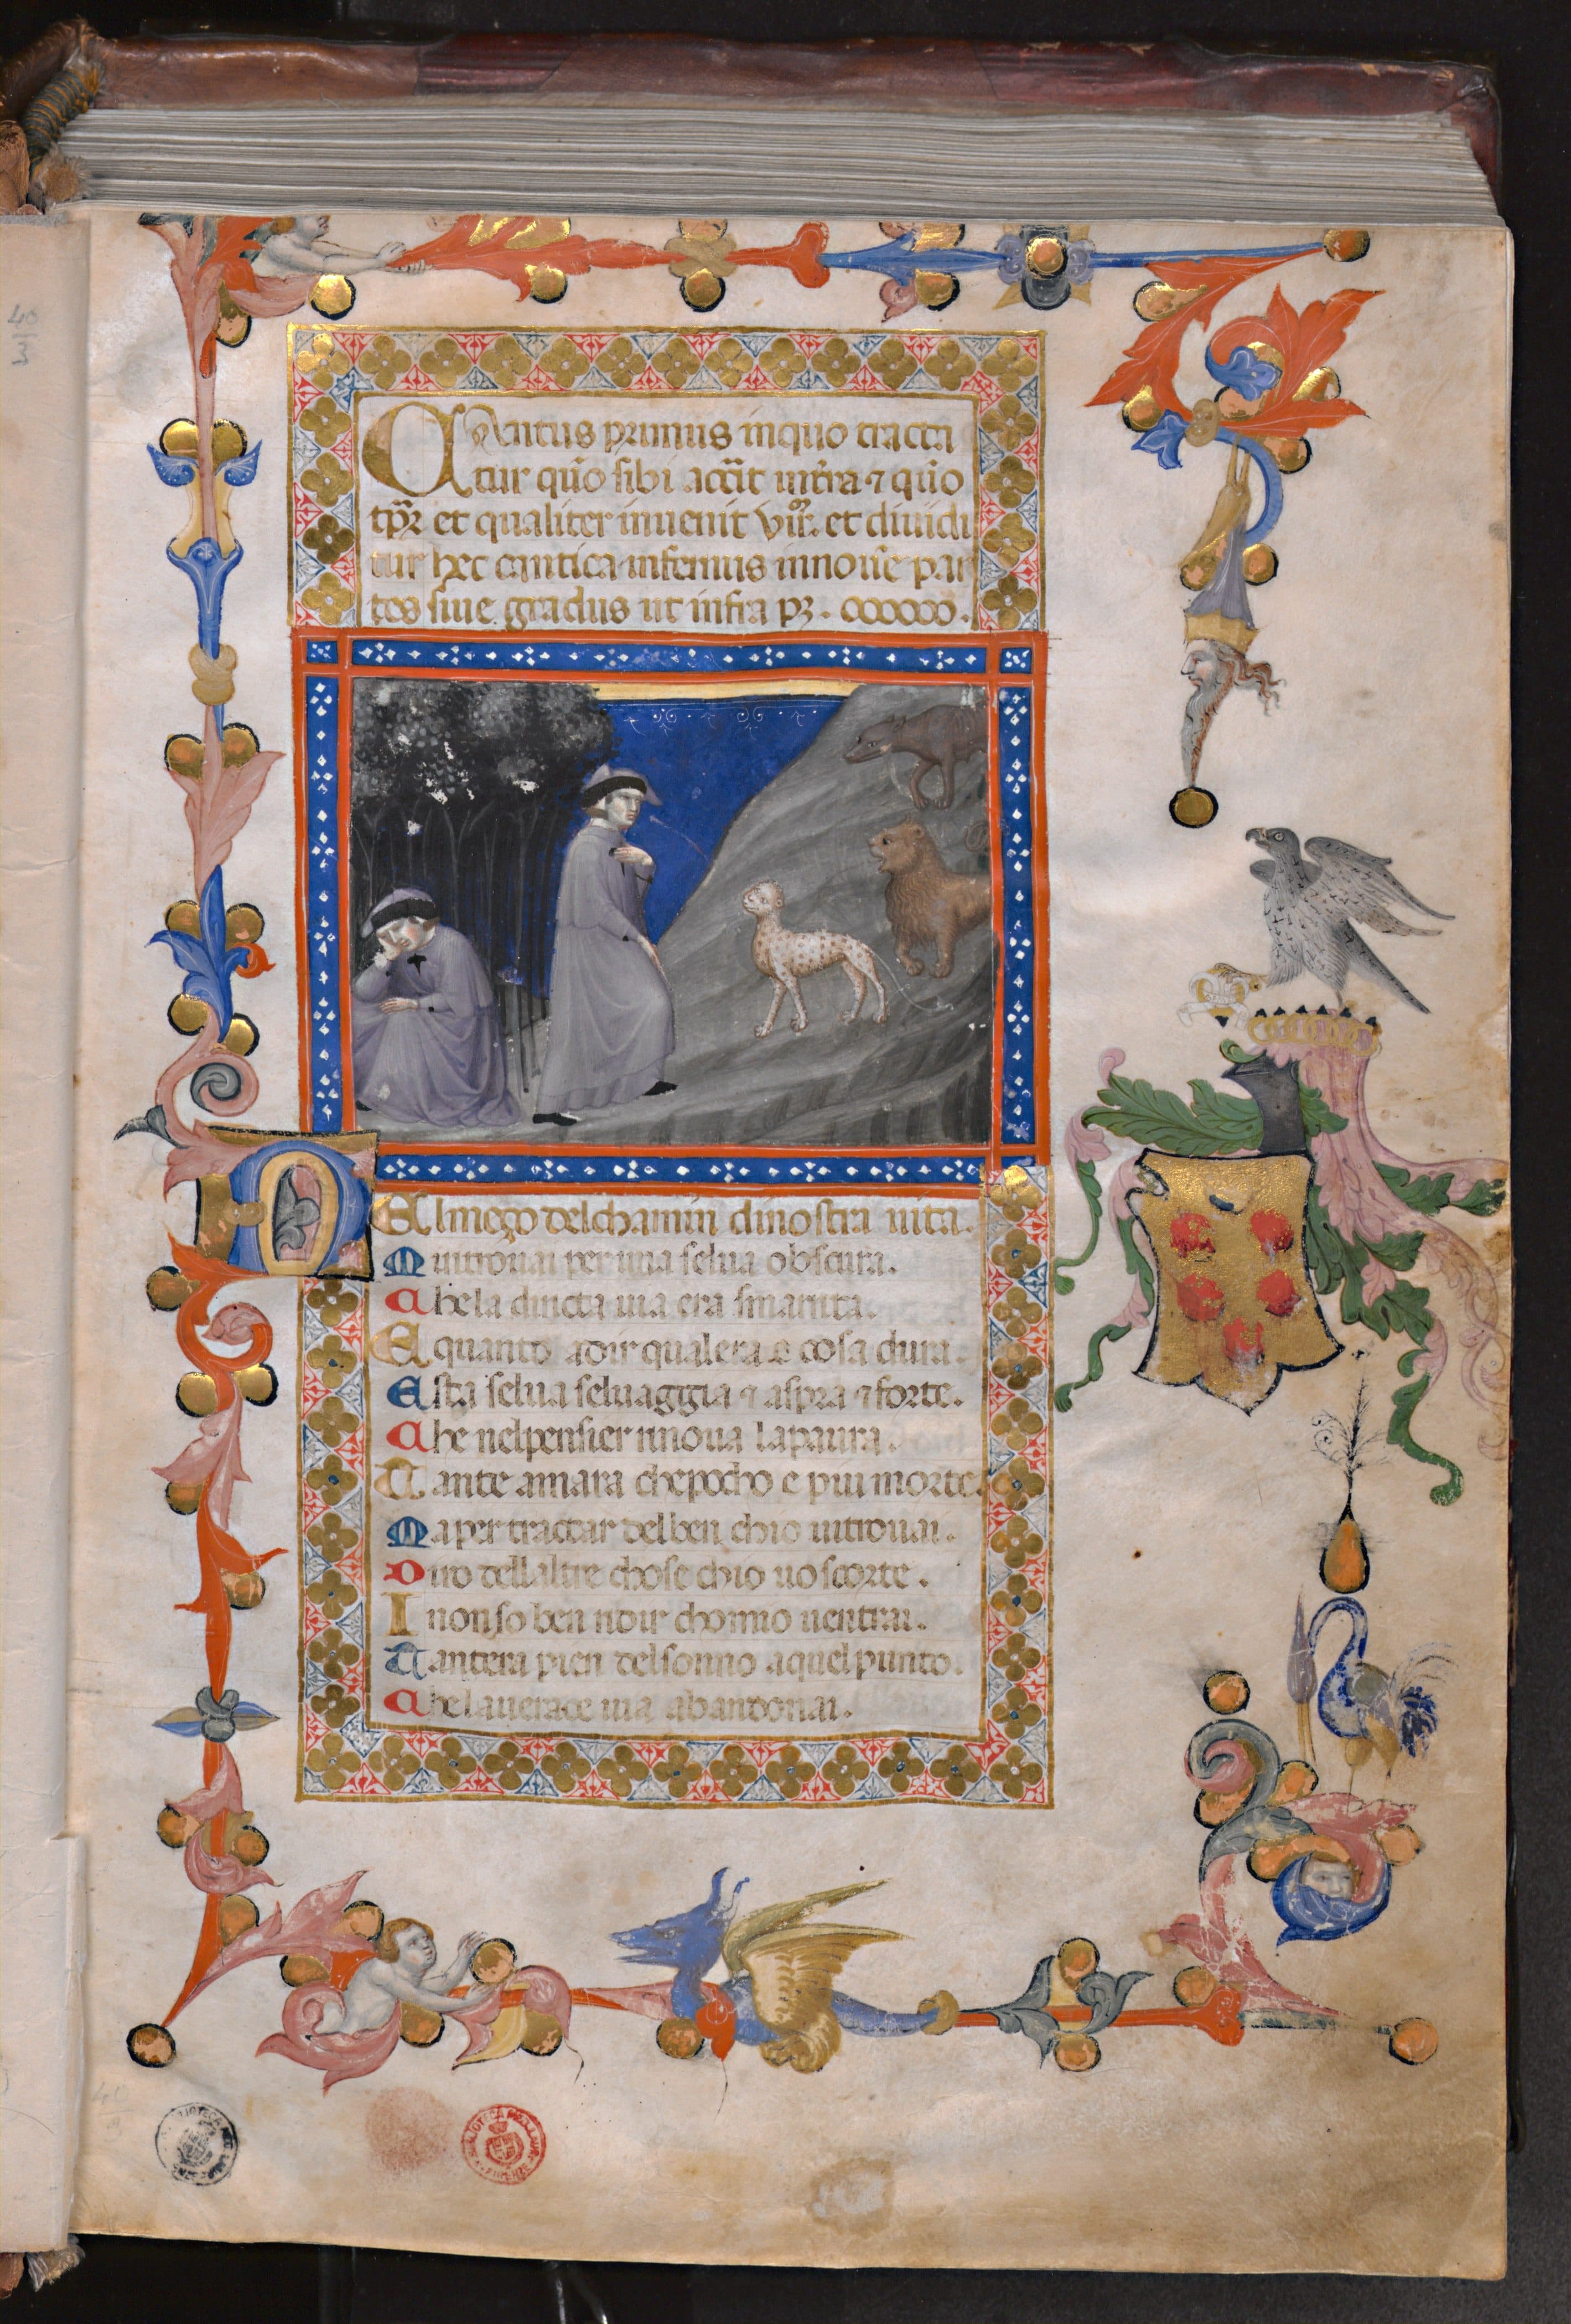 Cantus primus inquo tracta
tur qūo sibi accīt intra ⁊ qūo
tp̄r et qualiter inuenit et diuidi
tur hec cantica infernus innoūe par
tes siue gradus ut infra pꝫ.
NEl mezo del chamin dinostra uita.
Mi ritrouai per una selua obscura.
Che la diricta uia era smarrita.
E quanto adir qualera e cosa dura.
Esta selua seluaggia ⁊ aspra ⁊ forte.
Che nelpensier rinoua lapaura.
Tante amara chepocho e piu morte.
Ma per tractar delben chio uitrouai.
Diro dellaltre chose chio uo scorte.
I non so ben ridir chomio uentrai.
Tantera pien del sonno aquel punto.
Che lauerace uia abandonai.
40
3